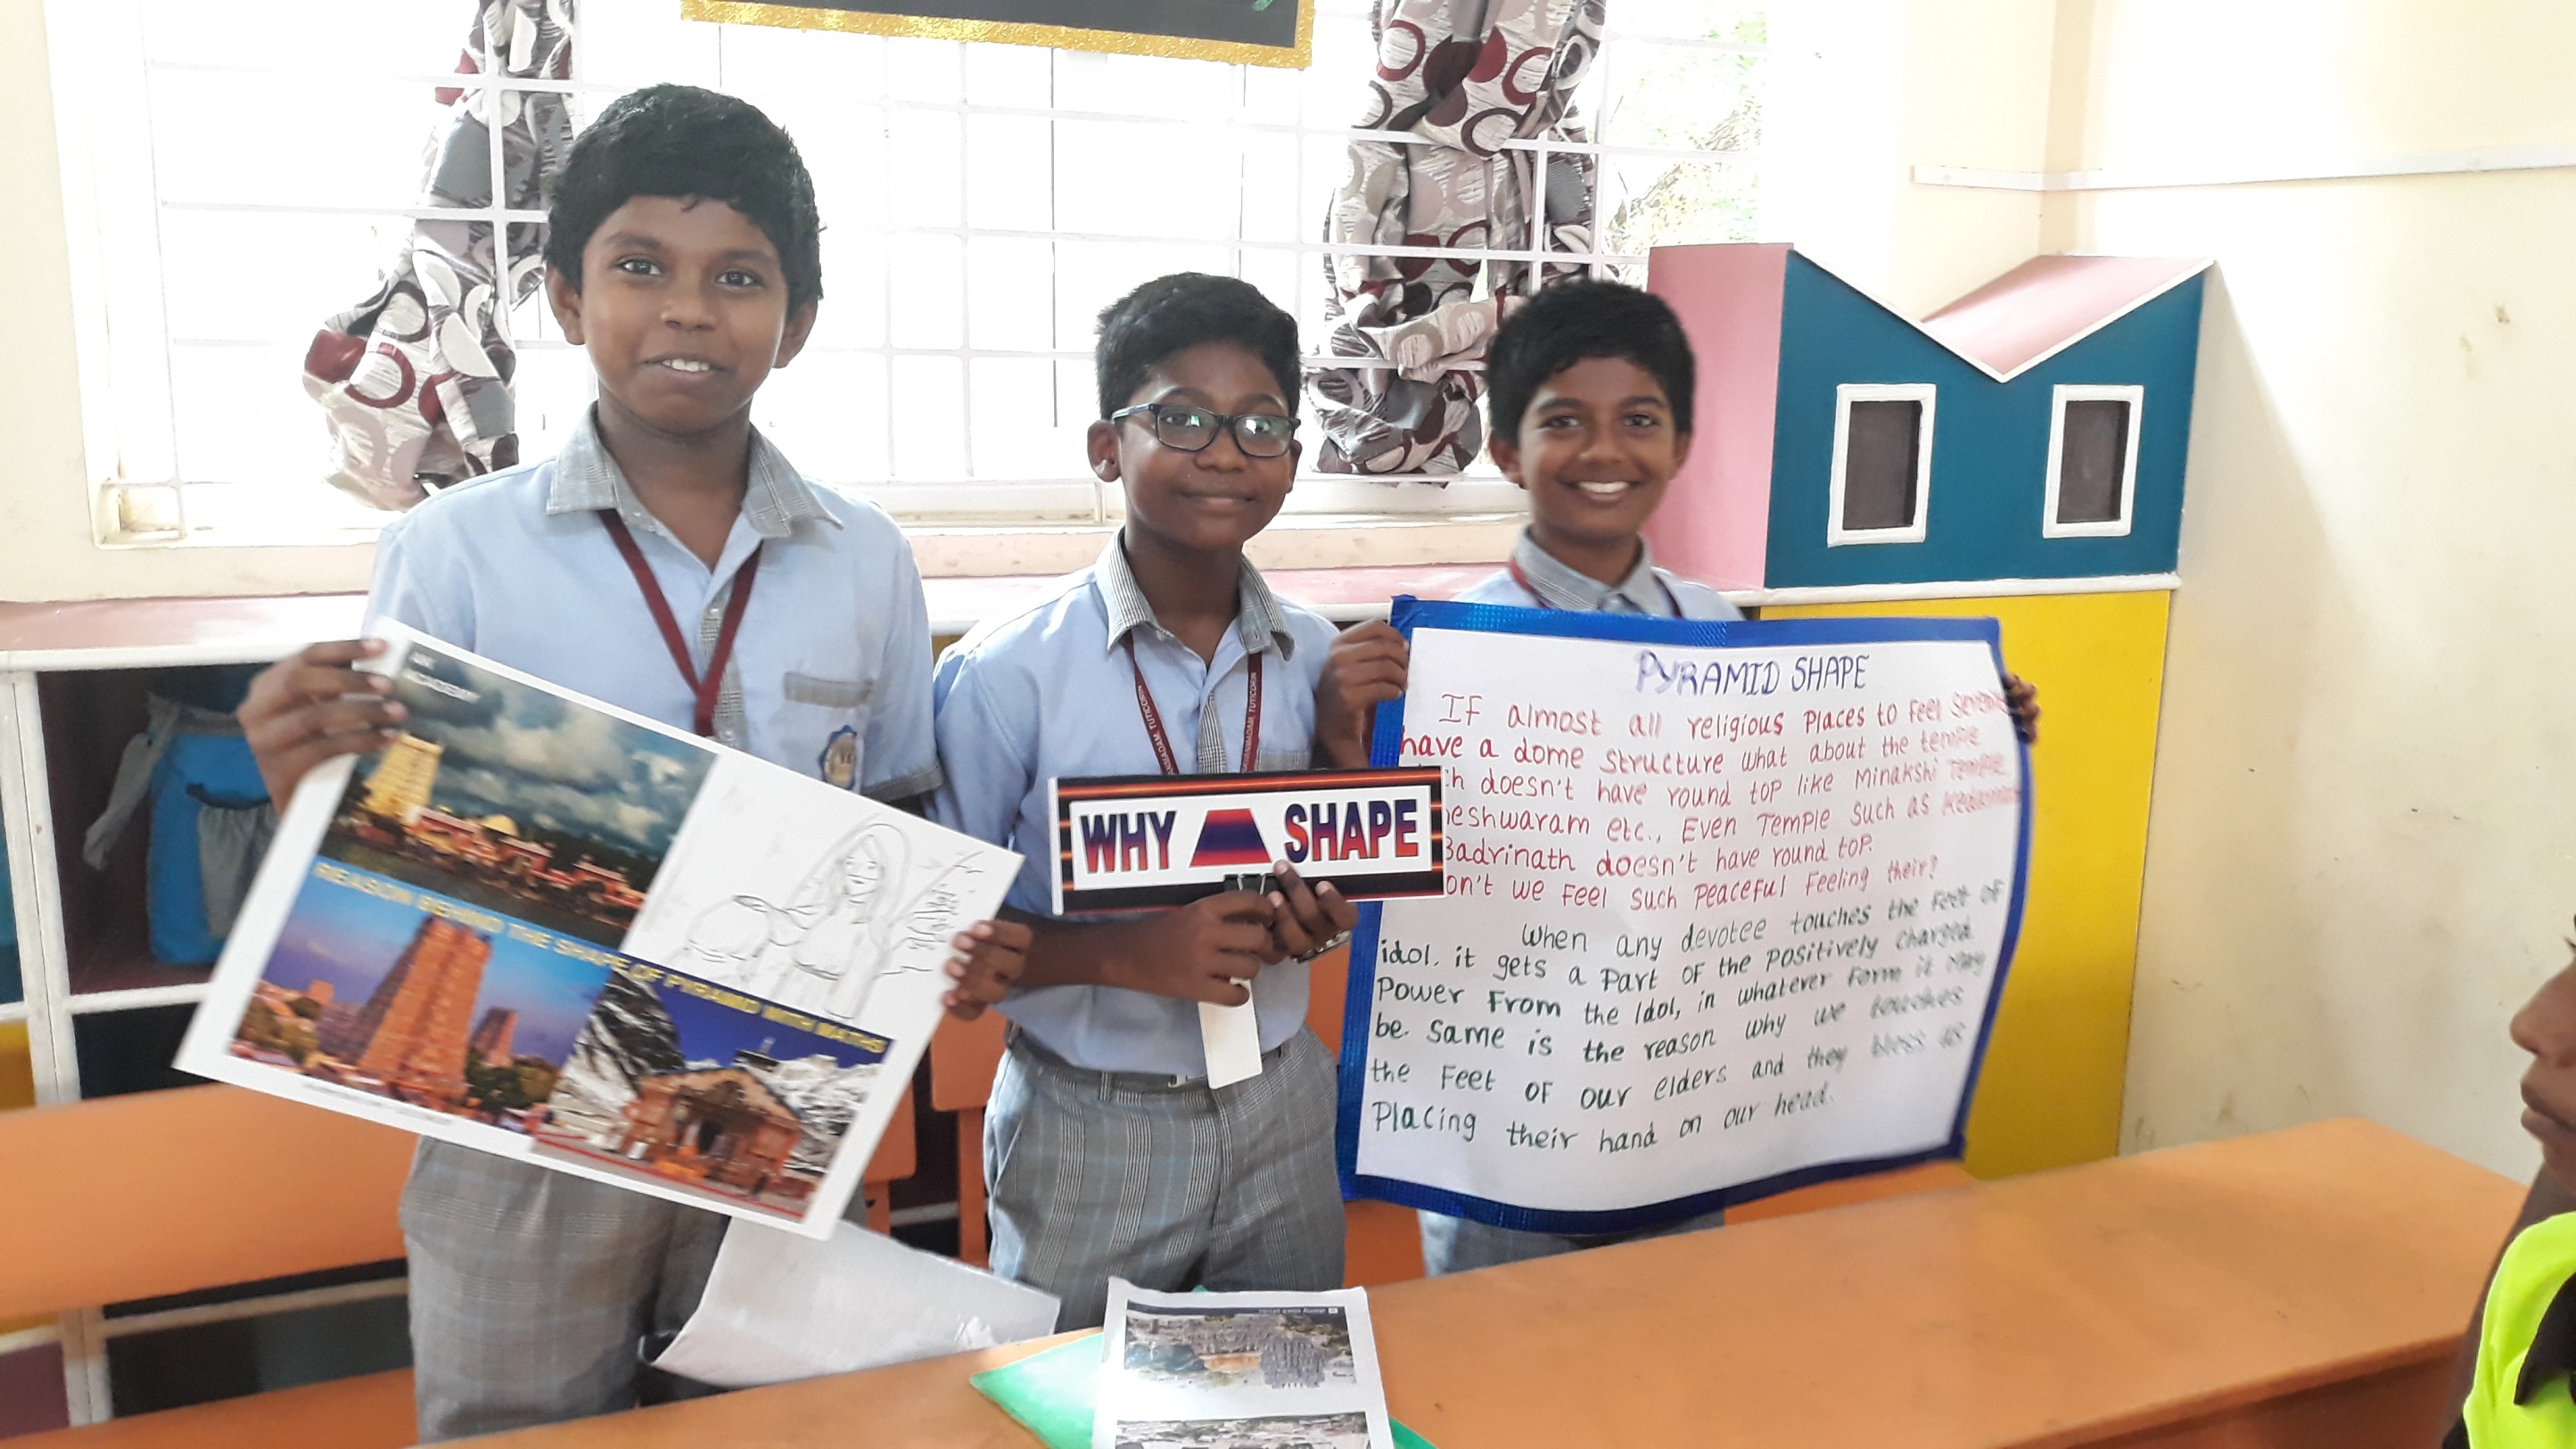 REASON BEHIND THE SHAPE OF PYRAMID WITH MATHS
TUTICORIN
TUTICORIN
WHY SHAPE
PYRAMID SHAPE
If almost all religious Places to Feel
have a dome structure what about the temple
doesn't have round top like Minakshi Temple,
etc., Even Temple Such as
Badrinath doesn't have round top.
we Feel Such Peaceful Feeling their?
When any devotee touches the Feet of
idol. it gets a Part of the Positively charged
Power From the Idol, in whatever Form it May
be. Same is the reason why we touches
the Feet of our elders and they bless us
Placing their hand on our head.